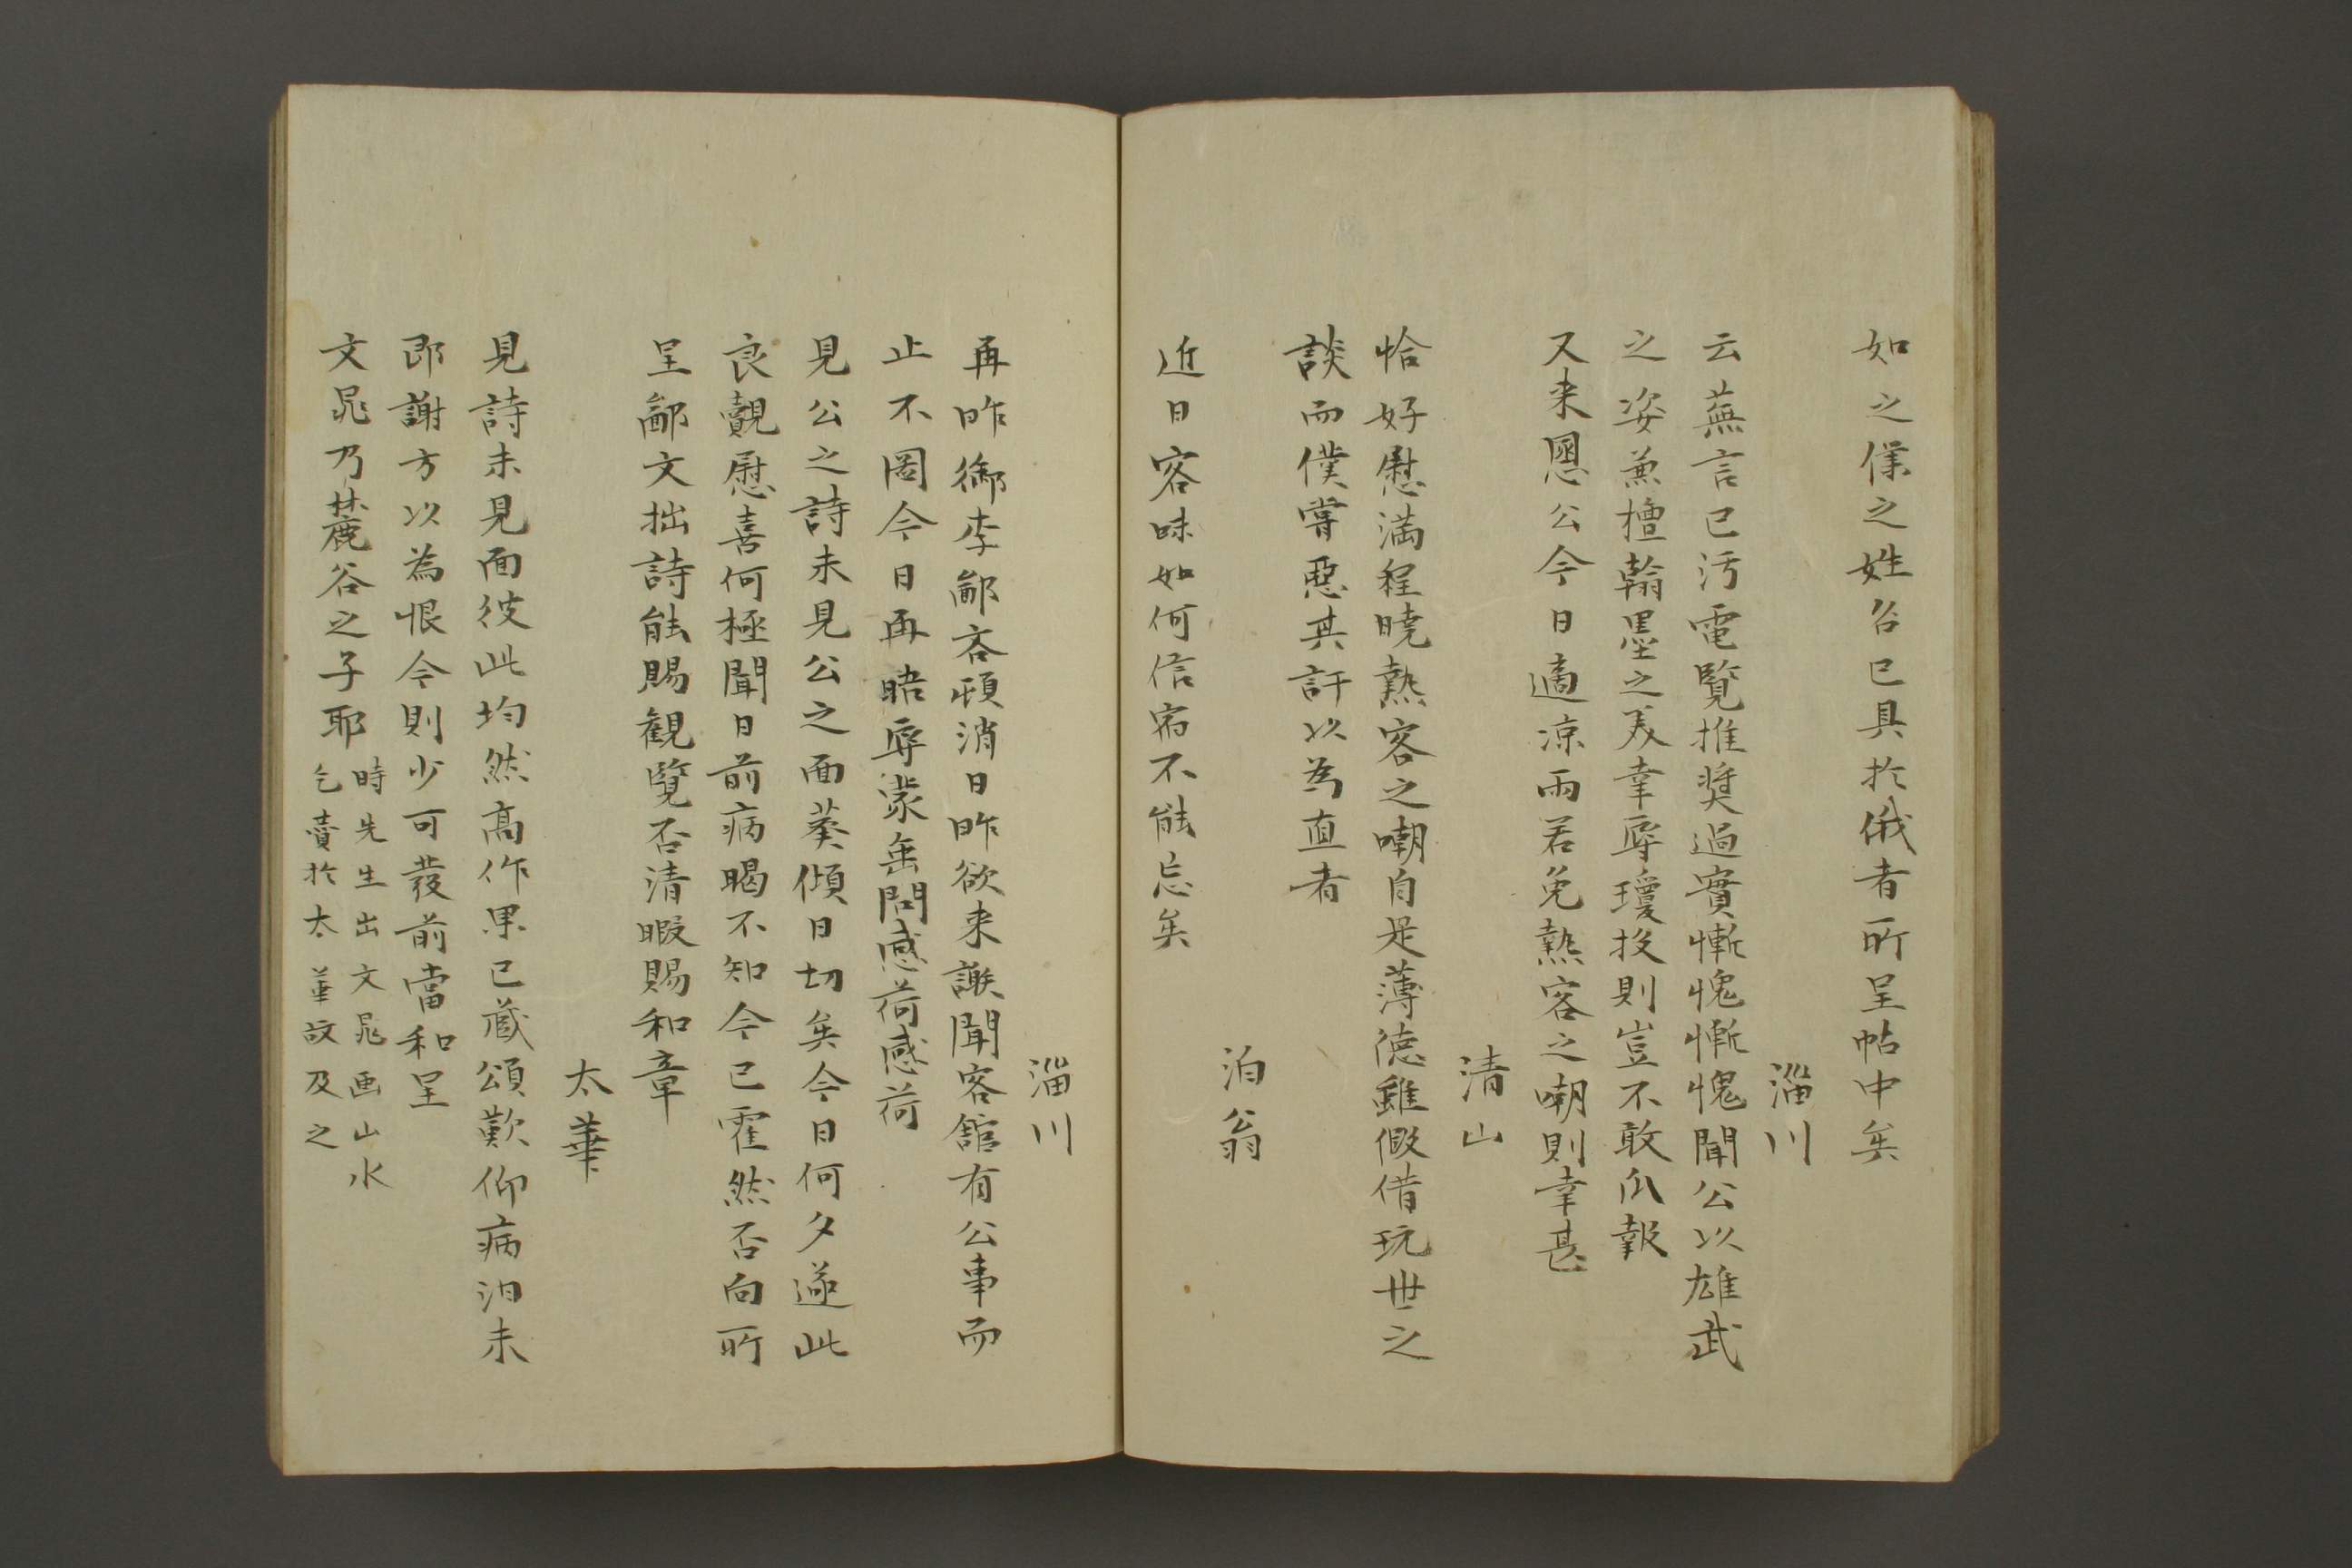 如之僕之姓名已具於俄者所呈帖中矣
淄川
云蕪言已汚電覧推奨過實慚愧慚愧聞公以雄武
之姿兼擅翰墨之美幸辱瓊投則豈不敢瓜報
又来恩公今日適凉雨若免熱客之嘲則幸甚
清山
恰好慰満程暁熱客之嘲自是薄徳雖假借玩世之
談而僕嘗惡其訐以為直者
泊翁
近日客味如何信宿不能忘矣
淄川
再昨御李鄙吝頓消日昨欲来謝聞客舘有公事而
止不圖今日再晤辱蒙垂問感荷感荷
見公之詩未見公之面葵傾日切矣今日何夕遂此
良覿慰喜何極聞日前病暍不知今已霍然否向所
呈鄙文拙詩能賜観覧否清暇賜和章
太華
見詩未見面彼此均然高作果已蔵頌歎仰病汨未
即謝方以為恨今則少可發前當和呈
文晁乃麓谷之子耶 時先生出文晁画山水
乞賣於太華故及之